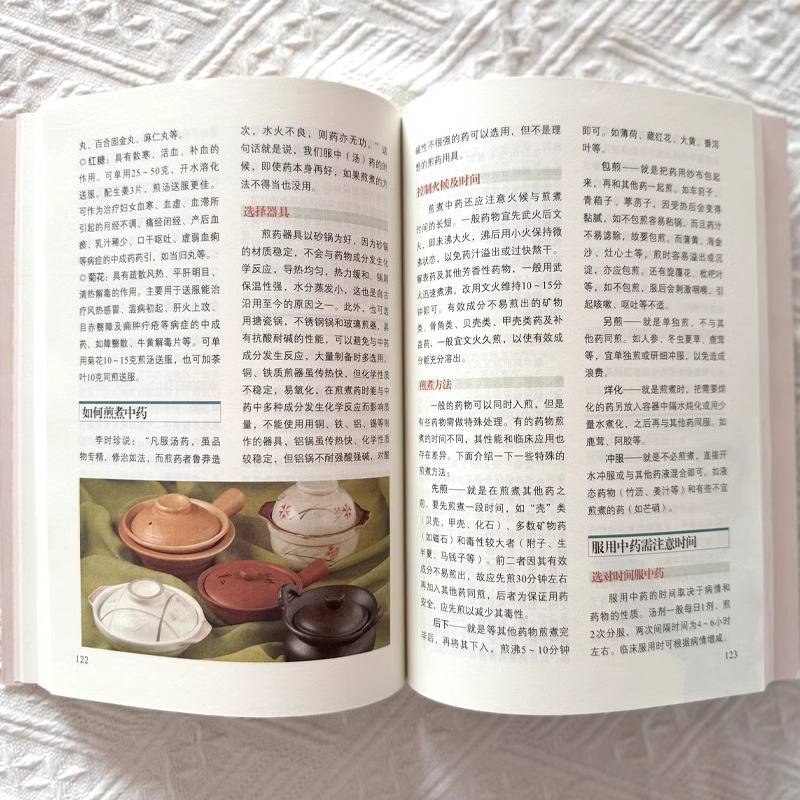 丸、百合固金丸、麻仁丸等。
◎红糖：具有散寒、活血、补血的
作用。可单用25～50克，开水溶化
送服。配生姜3片，煎汤送服更佳。
可作为治疗妇女血寒、血虚、血滞所
引起的月经不调、痛经闭经、产后血
瘀、乳汁稀少、口干呕吐、虚弱血痢
等病症的中成药药引，如当归丸等。
◎菊花：具有疏散风热、平肝明目、
清热解毒的作用。主要用于送服能治
疗风热感冒、温病初起、肝火上攻、
目赤翳障及痈肿疔疮等病症的中成
药，如障翳散、牛黄解毒片等。可单
用菊花10～15克煎汤送服，也可加茶
叶10克同煎送服。
如何煎煮中药
李时珍说：“凡服汤药，虽品
物专精，修治如法，而煎药者鲁莽造
次，水火不良，则药亦无功。”这
句话就是说，我们服中（汤）药的时
候，即使药本身再好，如果煎煮的方
法不得当也没用。
选择器具
煎药器具以砂锅为好，因为砂锅
的材质稳定，不会与药物成分发生化
学反应，导热均匀，热力缓和，锅周
保温性强，水分蒸发小，这也是自古
沿用至今的原因之一。此外，也可选
用搪瓷锅，不锈钢锅和玻璃煎器，具
有抗酸耐碱的性能，可以避免与中药
成分发生反应，大量制备时多选用。
铜、铁质煎器虽传热快，但化学性质
不稳定，易氧化，在煎煮药时能与中
药中多种成分发生化学反应而影响质
量，不能使用用铜、铁、铝、锡等制
作的器具，铝锅虽传热快，化学性质
较稳定，但铝锅不耐强酸强碱，对酸
122
碱性不很强的药可以选用，但不是理
想的煎药用具。
控制火候及时间
煎煮中药还应注意火候与煎煮
时间的长短。一般药物宜先武火后文
火，即未沸大火，沸后用小火保持微
沸状态，以免药汁溢出或过快熬干。
解表药及其他芳香性药物，一般用武
火迅速煮沸，改用文火维持10～15分
钟即可。有效成分不易煎出的矿物
类、骨角类、贝壳类、甲壳类药及补
益药，一般宜文火久煎，以使有效成
分能充分溶出。
煎煮方法
一般的药物可以同时入煎，但是
有些药物需做特殊处理。有的药物煎
煮的时间不同，其性能和临床应用也
存在差异。下面介绍一下一些特殊的
煎煮方法：
先煎——就是在煎煮其他药之
前，要先煎煮一段时间，如“壳”类
（贝壳、甲壳、化石）、多数矿物药
（如磁石）和毒性较大者（附子、生
半夏、马钱子等）。前二者因其有效
成分不易煎出，故应先煎30分钟左右
再加入其他药同煎，后者为保证用药
安全，应先煎以减少其毒性。
后下——就是等其他药物煎煮完
毕后，再将其下入，煎沸5～10分钟
即可。如薄荷、藏红花、大黄、番泻
叶等。
包煎——就是把药用纱布包起
来，再和其他药一起煎。如车前子、
青葙子、葶苈子，因受热后会变得
黏腻，如不包煎容易粘锅，而且药汁
不易滤除，故要包煎。而蒲黄、海金
沙、灶心土等，煎时容易溢出或沉
淀，亦应包煎，还有旋覆花、枇杷叶
等，如不包煎，服后会刺激咽喉，引
起咳嗽、呕吐等不适。
另煎——就是单独煎，不与其
他药同煎。如人参、冬虫夏草、鹿茸
等，宜单独煎或研细冲服，以免造成
浪费。
烊化——就是煎煮时，把需要烊
化的药另放入容器中隔水炖化或用少
量水煮化，之后再与其他药同服。如
鹿茸、阿胶等。
冲服——就是不必煎煮，直接开
水冲服或与其他药液混合即可。如液
态药物（竹沥、姜汁等）和有些不宜
煎煮的药（如芒硝）。
服用中药需注意时间
选对时间服中药
服用中药的时间取决于病情和
药物的性质。汤剂一般每日1剂、煎
2次分服、两次间隔时间为4～6小时
左右。临床服用时可根据病情增减，
123